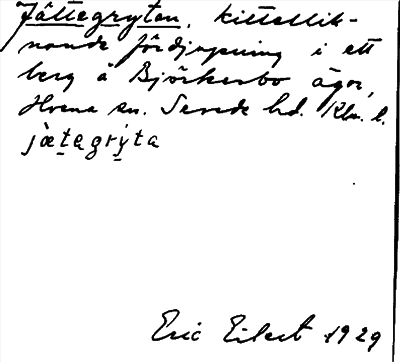 Jättegrytan, kittellik-
nande fördjupning i ett
berg å Björkerbo ägor,
Hvena sn. Sevede hd. Klm. l.
jætegrýta
Eric Eilert 1929